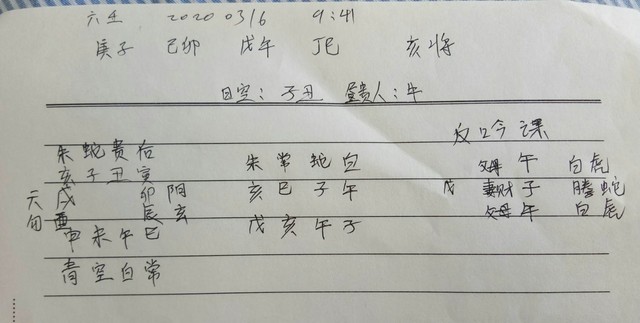 六壬 2020 0316 9:41
庚子 己卯 戊午 丁巳 亥将
日空：子丑 昼贵人：牛
反吟课
朱蛇贵后 朱常蛇白 父母 午 白虎
亥子丑寅
六戌 卯阴 亥巳子午 戊 妻财 子 腾蛇
勾酉 辰玄 父母 午 白虎
申未午巳 戊亥午子
青空白常